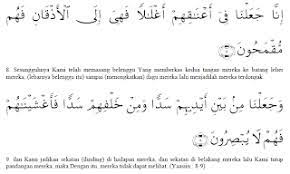 إِنَّا جَعَلْنَا فِىٓ أَعْنَـٰقِهِمْ أَغْلَـٰلًا فَهِىَ إِلَى ٱلْأَذْقَانِ فَهُم
مُّقْمَحُونَ ۝٨
8. Sesungguhnya Kami telah memasang belenggu Yang memberkas kedua tangan mereka ke batang leher
mereka, (lebarnya belenggu itu) sampai (menongkatkan) dagu mereka lalu menjadilah mereka terdongak.
وَجَعَلْنَا مِنۢ بَيْنِ أَيْدِيهِمْ سَدًّا وَمِنْ خَلْفِهِمْ سَدًّا فَأَغْشَيْنَـٰهُمْ
فَهُمْ لَا يُبْصِرُونَ ۝٩
9. dan Kami jadikan sekatan (dinding) di hadapan mereka, dan sekatan di belakang mereka lalu Kami tutup
pandangan mereka; maka Dengan itu, mereka tidak dapat melihat. (Yaasiin : 8-9)